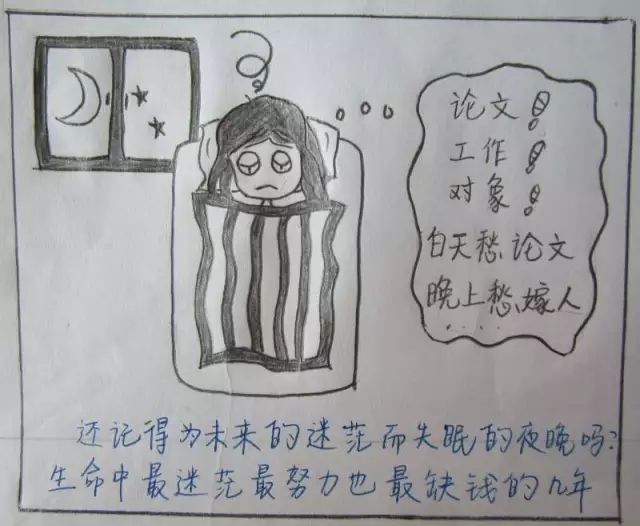 论文!
工作!
对象!
白天愁论文
晚上愁嫁人
....
还记得为未来的迷茫而失眠的夜晚吗?
生命中最迷茫最努力也最缺钱的几年